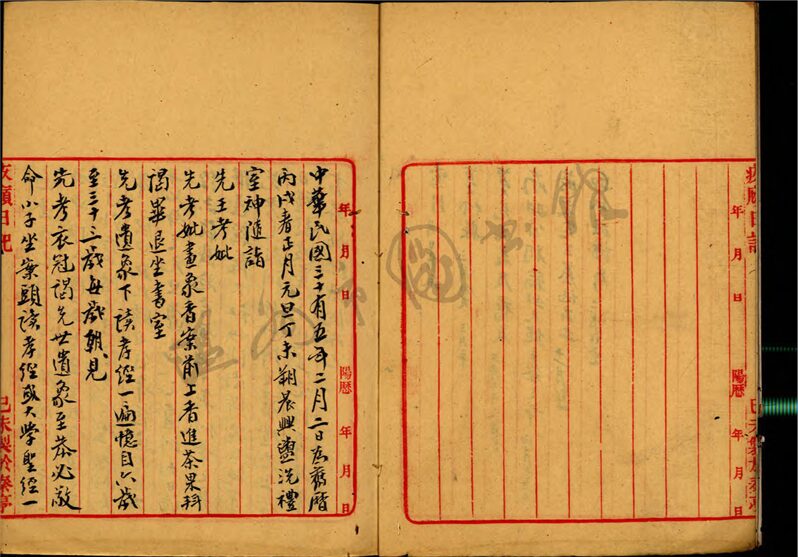 日記
年 月 日 陽曆 年 月 日
年 月 日 陽曆 年 月 日
中華民國三十有五年二月二日為舊曆
丙戌春正月元旦丁未朔晨興盥洗禮
室神隨詣
先王考妣
先考妣畫象香案前上香進茶果拜
謁畢退坐書室
先考遺象下讀孝經一遍憶自六歲
至三十二歲每歲朝見
先考衣冠謁先世遺象至恭必敬
命小子坐案頭讀孝經或大學聖經一
日記